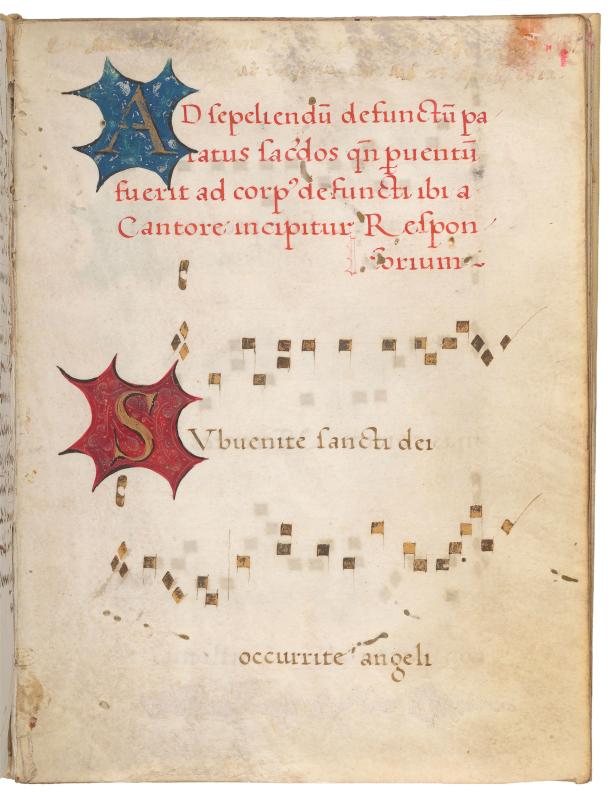 AD sepeliendū defunctū pa
ratus sac̄dos qn̄ puentū
fuerit ad corp' defuncti ibi a
Cantore incipitur Respon
sorium
SVbuenite sancti dei
occurrite angeli